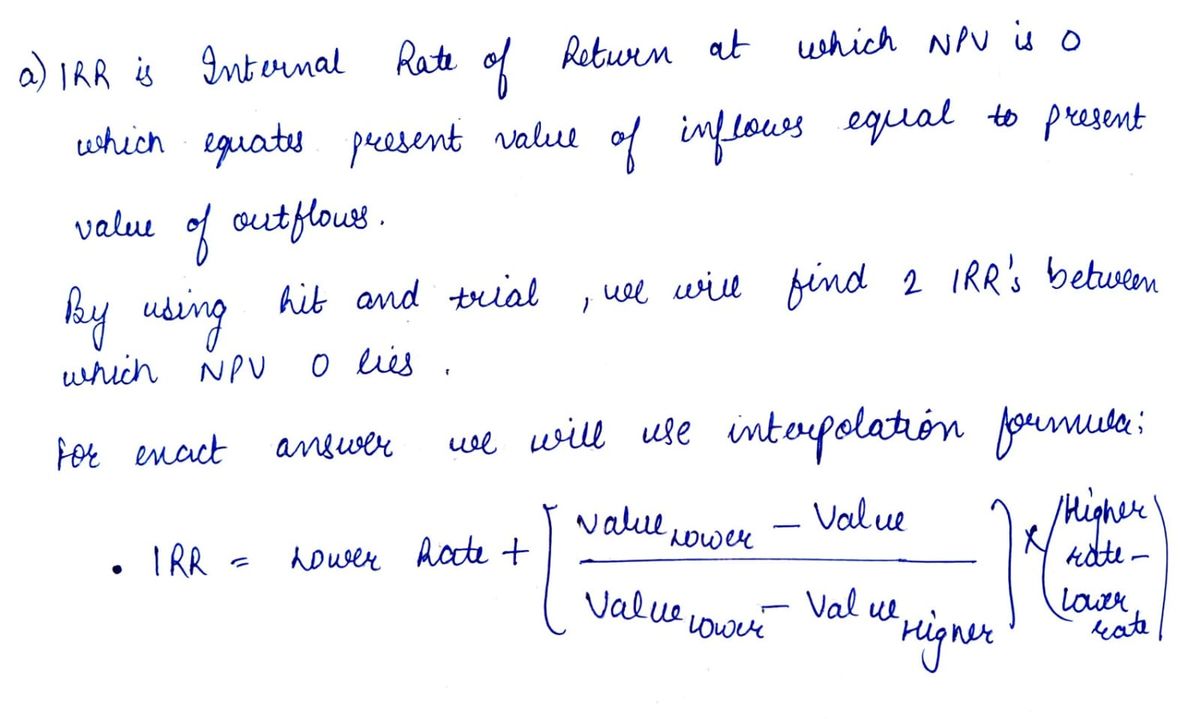 a) IRR is Internal Rate of Return at which NPV is 0
which equates present value of inflows equal to present
value of outflows.
By using hit and trial , we will find 2 IRR's between
which NPV 0 lies .
For exact answer we will use interpolation formula:
• IRR = Lower Rate + [ Value Lower – Value / Value Lower – Value Higher ] × ( Higher rate – Lower rate )